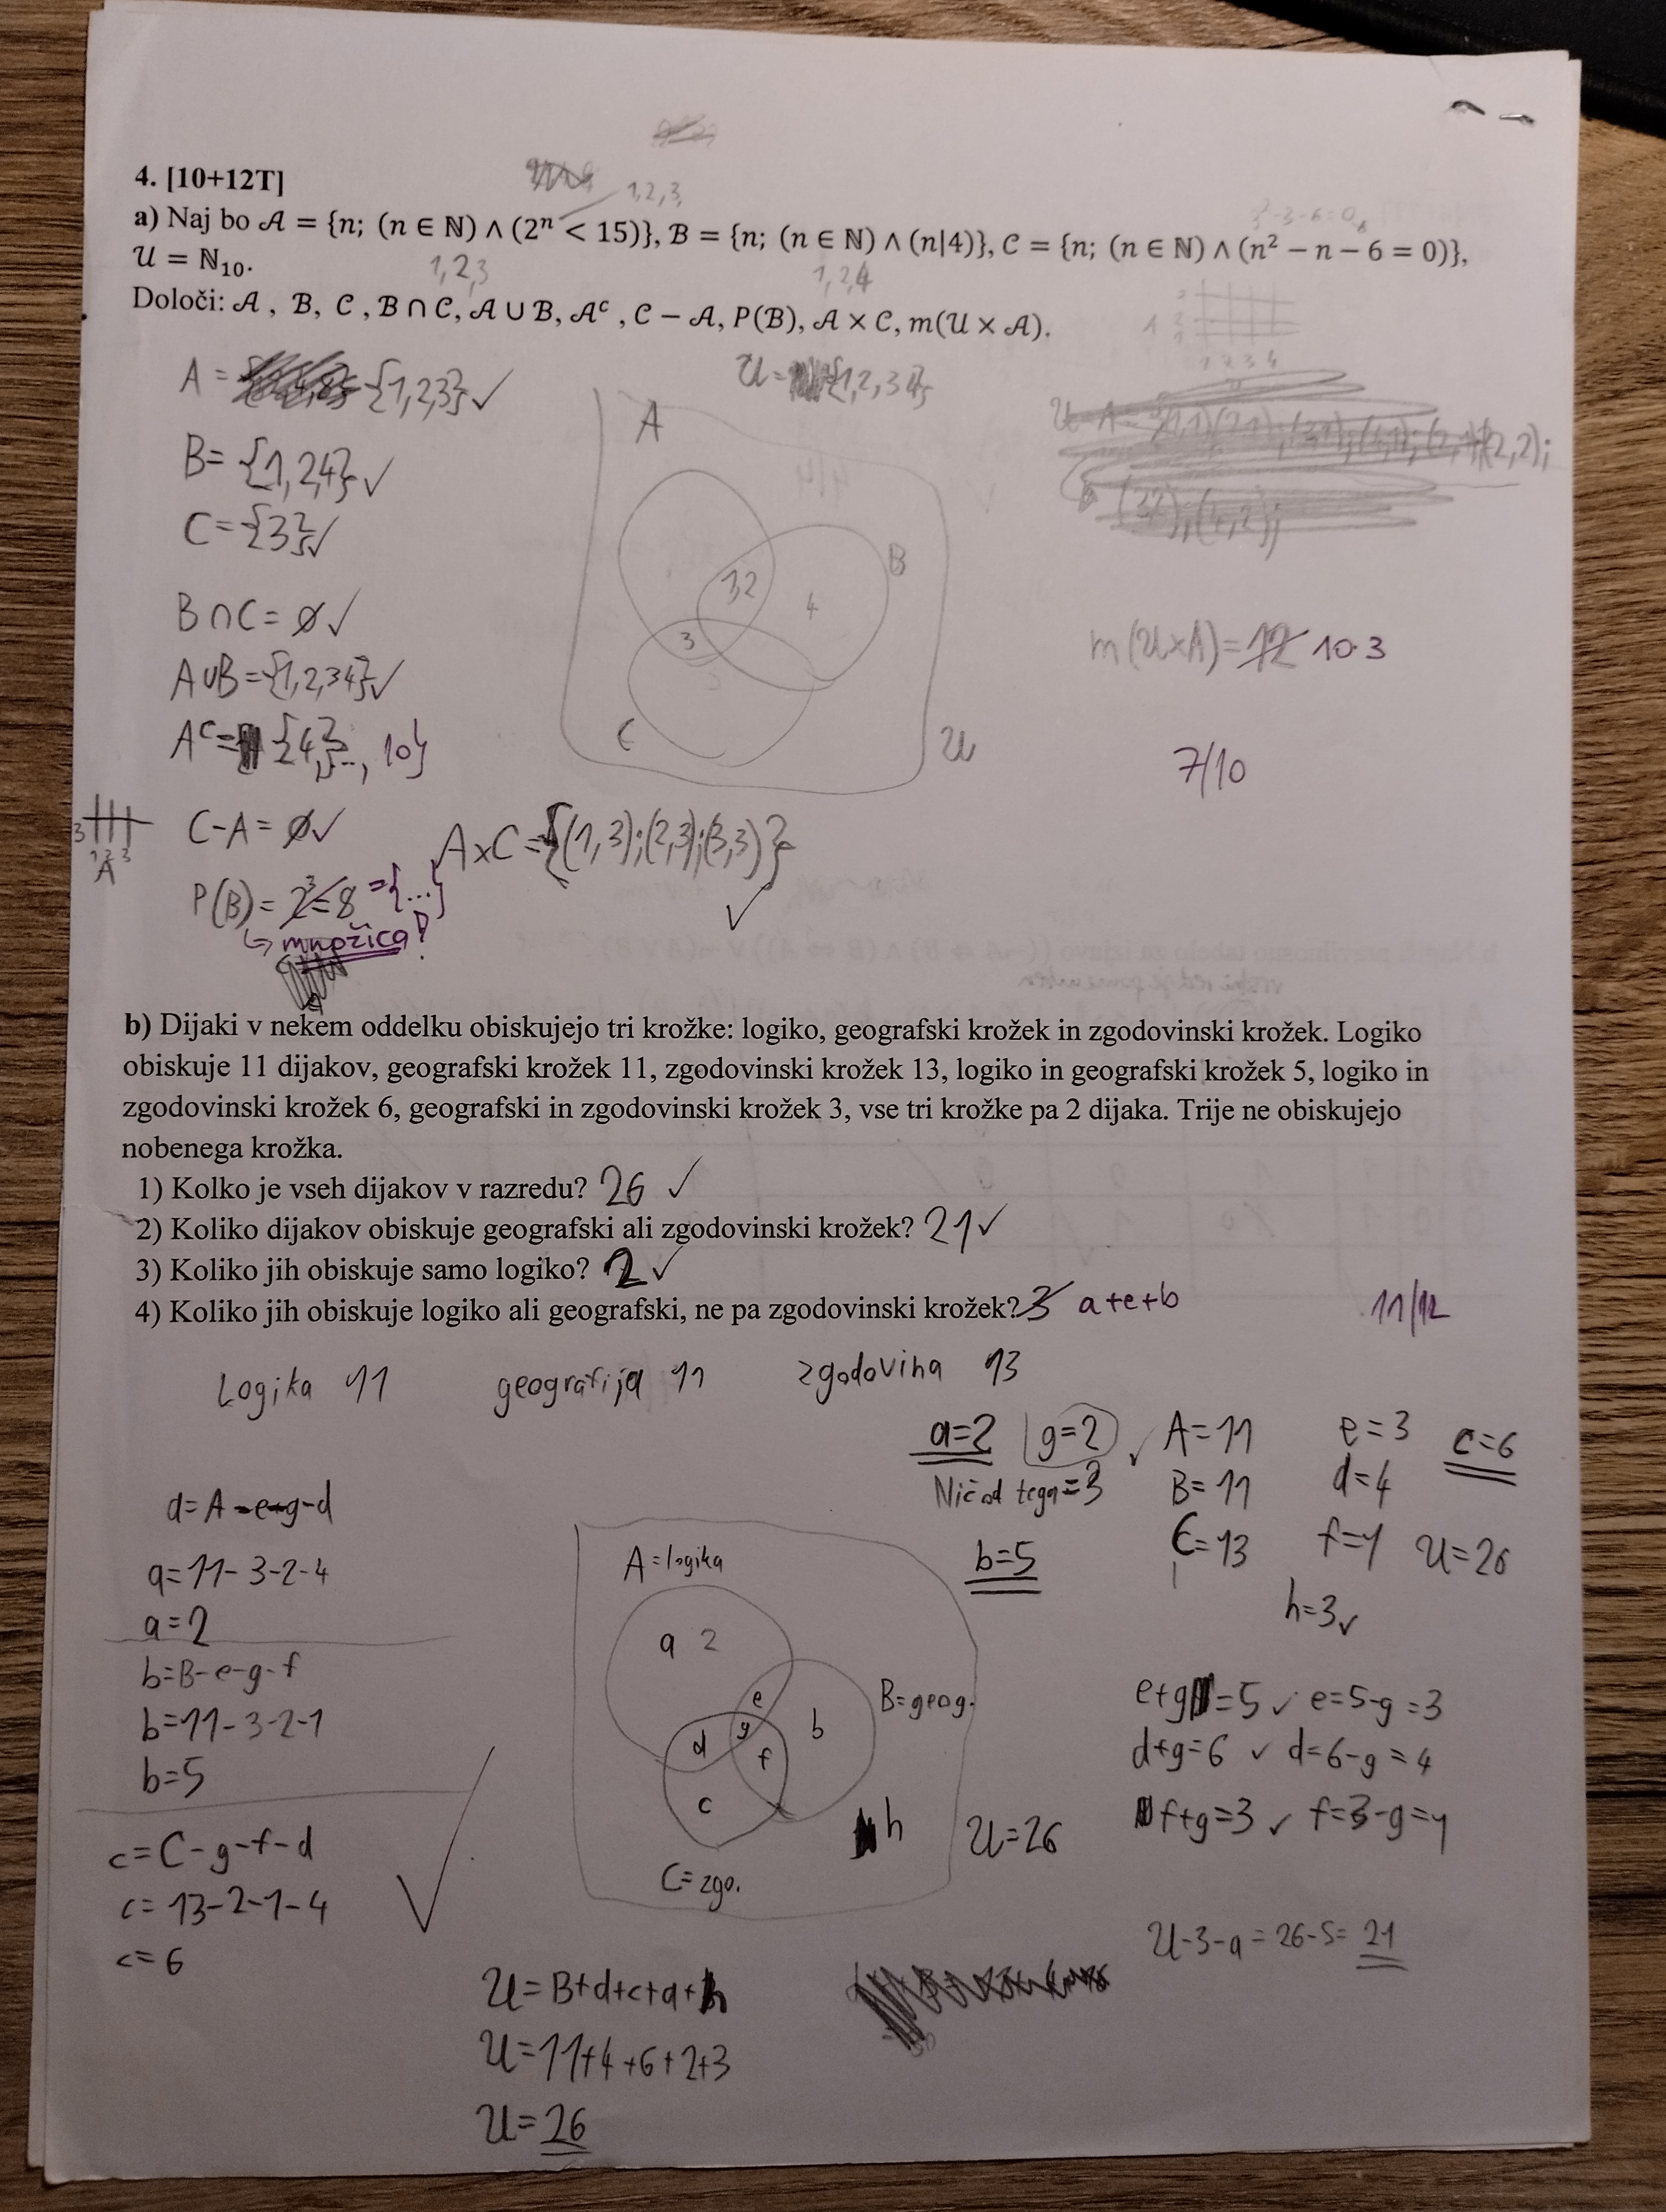 4. [10+12T]
1,2,3,
3²-3-6=0
a) Naj bo 𝒜 = {n; (n ∈ ℕ) ∧ (2ⁿ < 15)}, ℬ = {n; (n ∈ ℕ) ∧ (n|4)}, 𝒞 = {n; (n ∈ ℕ) ∧ (n² − n − 6 = 0)},
𝒰 = ℕ₁₀.
1,2,3
1,2,4
Določi: 𝒜 , ℬ, 𝒞 , ℬ ∩ 𝒞, 𝒜 ∪ ℬ, 𝒜ᶜ , 𝒞 − 𝒜, P(ℬ), 𝒜 × 𝒞, m(𝒰 × 𝒜).
A = {1,2,3} ✓
𝒰 = {1,2,34}
B = {1,2,4} ✓
C = {3} ✓
B∩C = ∅ ✓
A∪B = {1,2,34} ✓
Aᶜ = {4}, ..., 10}
C-A = ∅ ✓
P(B) = 2³=8 = {...}
↳ množica!
A×C = {(1,3);(2,3);(3,3)}
✓
A
B
32
4
3
C
𝒰
m(𝒰×A) = 12 10·3
7/10
3
1 2 3
A
b) Dijaki v nekem oddelku obiskujejo tri krožke: logiko, geografski krožek in zgodovinski krožek. Logiko
obiskuje 11 dijakov, geografski krožek 11, zgodovinski krožek 13, logiko in geografski krožek 5, logiko in
zgodovinski krožek 6, geografski in zgodovinski krožek 3, vse tri krožke pa 2 dijaka. Trije ne obiskujejo
nobenega krožka.
1) Kolko je vseh dijakov v razredu? 26 ✓
2) Koliko dijakov obiskuje geografski ali zgodovinski krožek? 21 ✓
3) Koliko jih obiskuje samo logiko? 2 ✓
4) Koliko jih obiskuje logiko ali geografski, ne pa zgodovinski krožek? 3 a+e+b
11/12
Logika 11 geografija 11 zgodovina 13
a=2 g=2 ✓ A=11 e=3 c=6
Nič od tega=3 B=11 d=4
b=5 C=13 f=1 𝒰=26
h=3 ✓
d=A-e-g-d
a=11-3-2-4
a=2
b=B-e-g-f
b=11-3-2-1
b=5
c=C-g-f-d
c=13-2-1-4
c=6
✓
A=logika
a 2
e
B=geog.
b
g
d
f
c
h
C=zgo.
𝒰=26
e+g=5 ✓ e=5-g=3
d+g=6 ✓ d=6-g=4
f+g=3 ✓ f=3-g=1
𝒰-3-a=26-5=21
𝒰=B+d+c+a+h
𝒰=11+4+6+2+3
𝒰=26